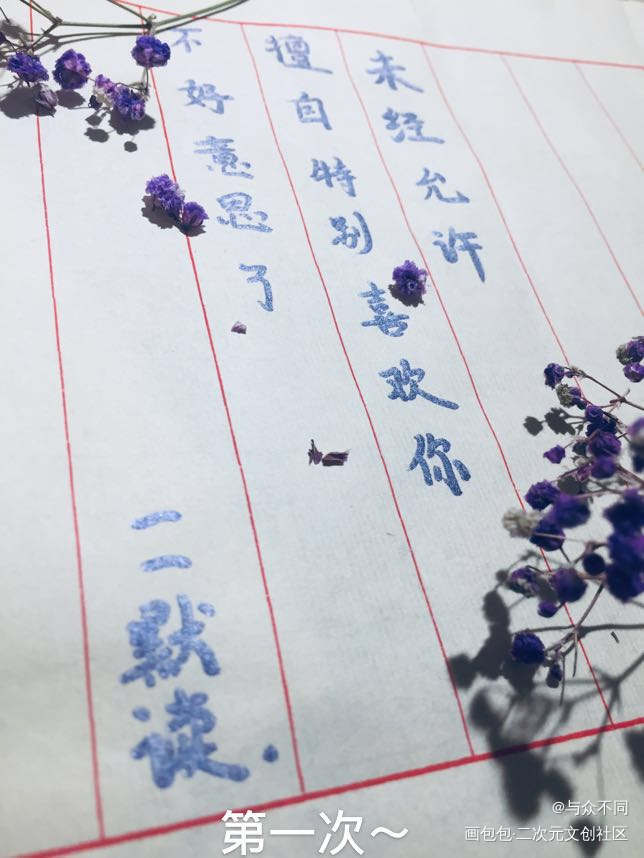 未经允许
擅自特别喜欢你
不好意思了
一一默漠.
第一次～
@与众不同
画包包·二次元文创社区